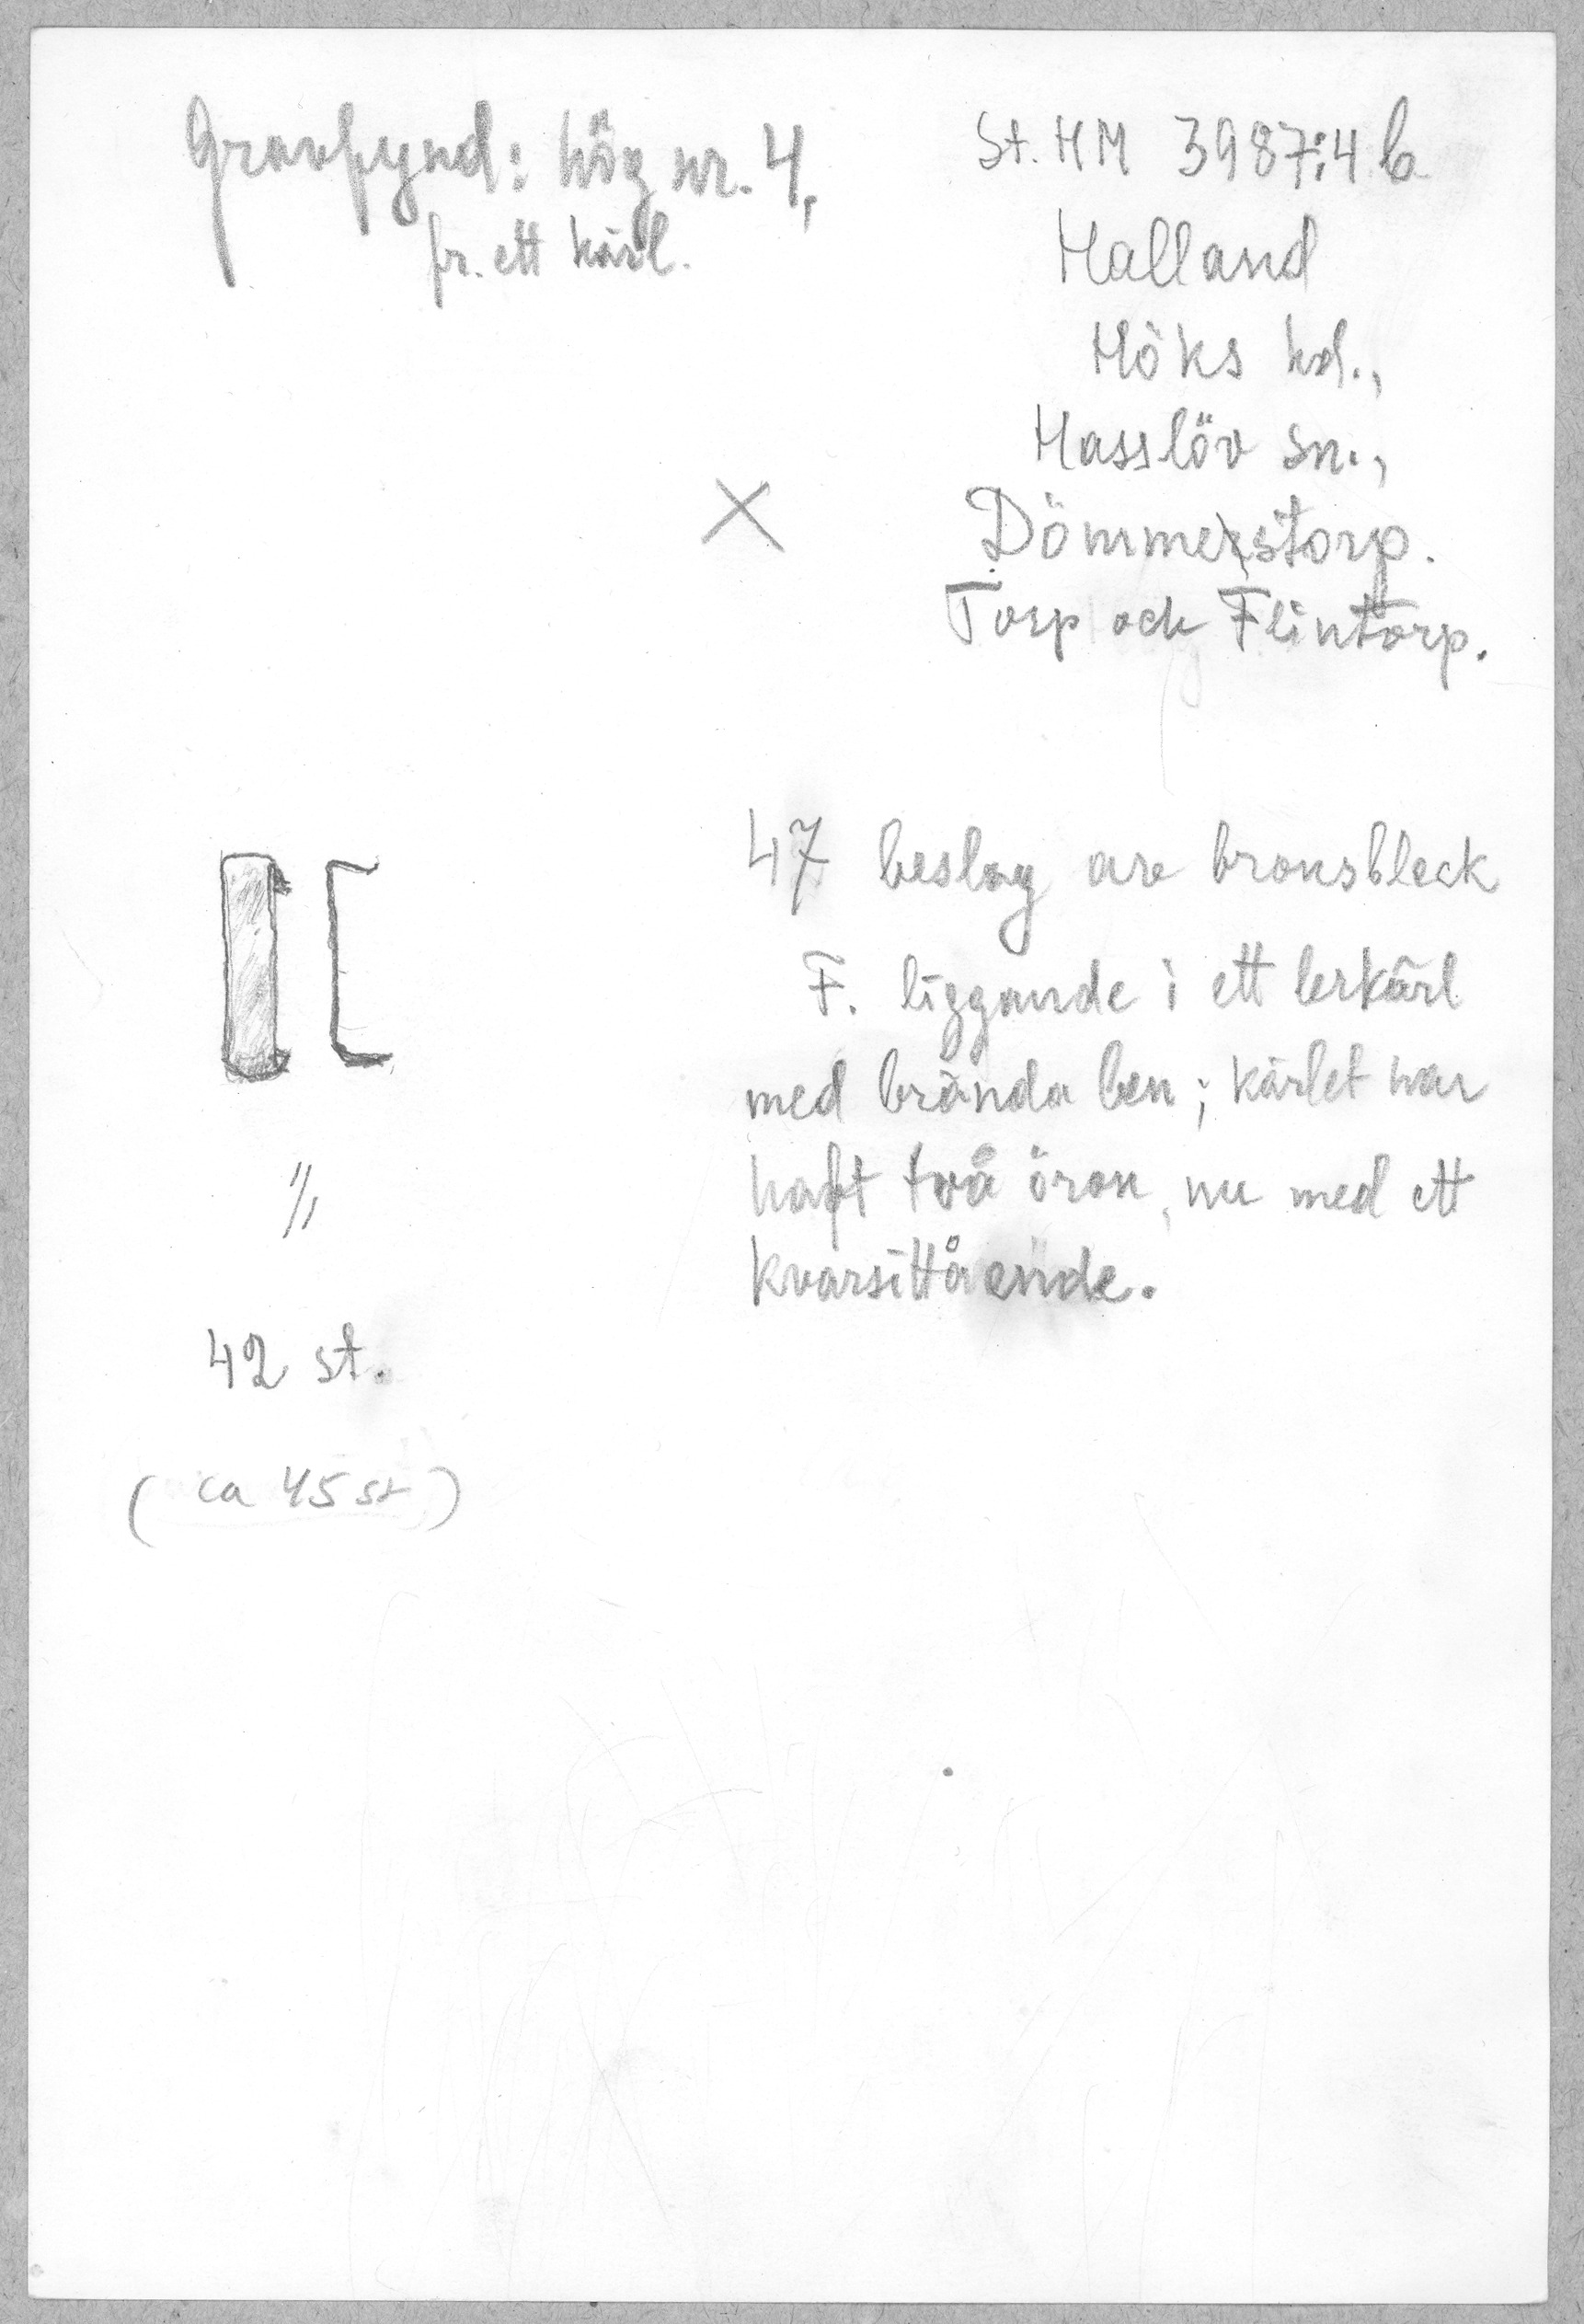 Gravfynd: hög nr. 4,
fr. ett kärl.
St. HM 3987:4 b
Halland
Höks hd.,
Hasslöv sn.,
Dömmestorp.
Torp och Flintorp.
47 beslag av bronsbleck
F. liggande i ett lerkärl
med brända ben; kärlet har
haft två öron, nu med ett
kvarsittående.
1/1
42 st.
(ca 45 st)